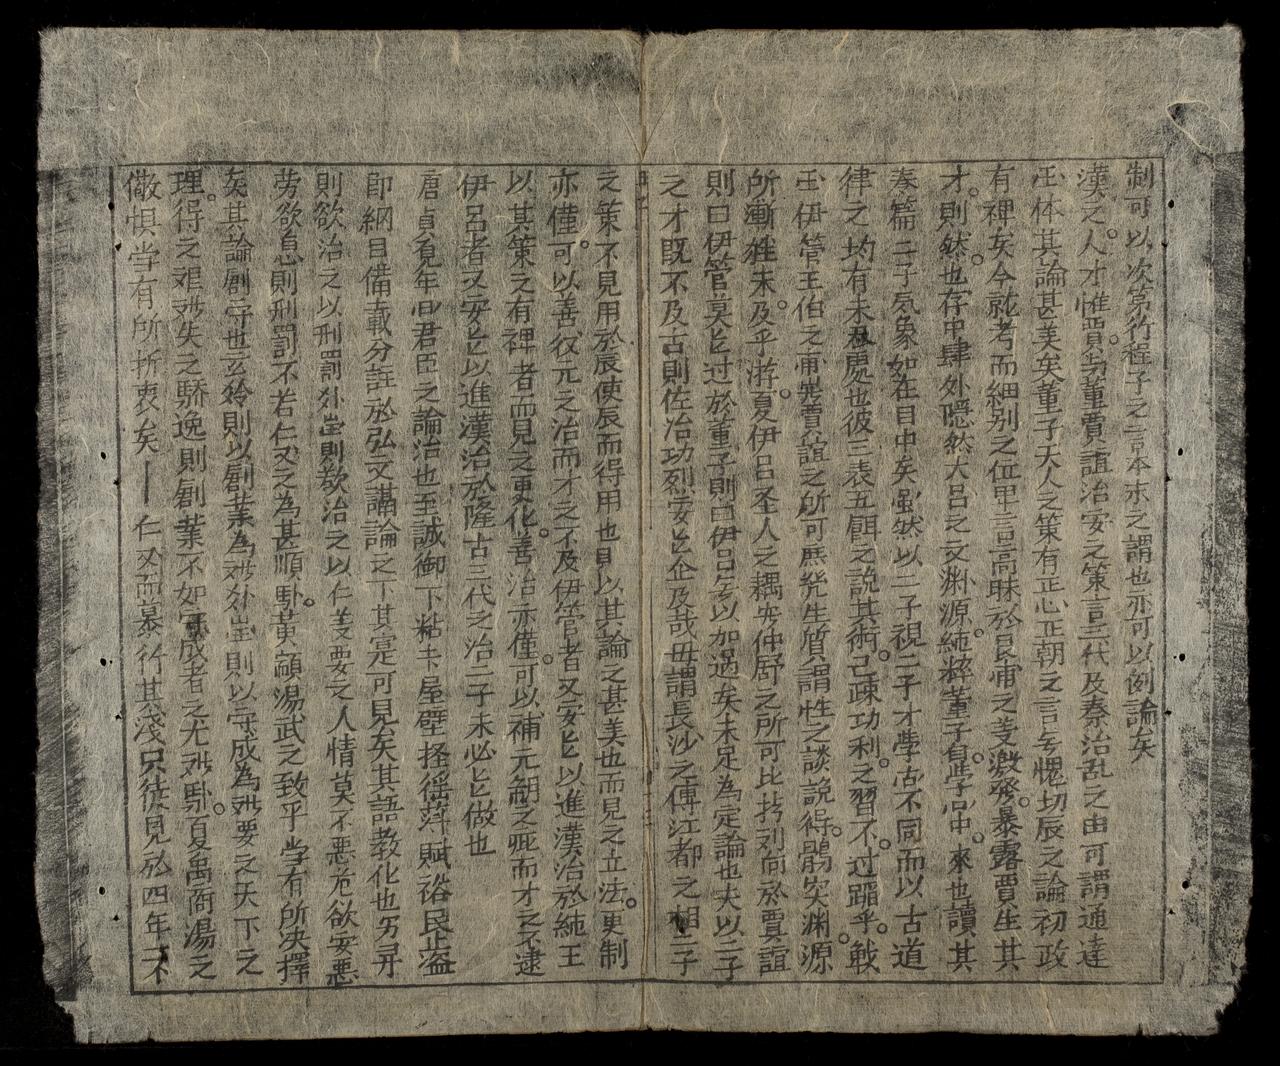 制可以次第行程子之言本末之謂也亦可以例論矣
漢之人才惟賈与董賈誼治安之策言三代及秦治乱之由可謂通達
王体其論甚美矣董子天人之策有正心正朝之言旡愧切辰之論初政
有裨矣今就考而細別之位卑言高昧於艮甫之戔激發暴露賈生其
才則然也存中肆外隠然大呂之文渊源純粹董子自学中來也讀其
奏篇二子気象如在目中矣虽然以二子視二子才学固不同而以古道
律之均有未尽處也彼三表五餌之説其術已疎功利之習不过躍乎戦
王伊管王伯之甫賈誼之所可庶発生質謂性之談説得鶻突渊源
所漸姓未及乎游夏伊吕圣人之耦安仲舒之所可比刘向於賈誼
則曰伊管莫匕过於董子則曰伊吕旡以加過矣未足為定論也夫以二子
之才既不及古則佐冶功烈安匕企及哉毌謂長沙之傅江都之相二子
之策不見用於辰使辰而得用也以其論之甚美也而見之立法更制
亦僅可以善後元之治而才之不及伊管者又安匕以進漢治於純王
以其策之有裨者而見之更化善治亦僅可以補元朔之疵而才之不逮
伊呂者又安匕以進漢治於隆古三代之治二子未必匕做也
唐貞覌年间君臣之論治也至誠御下粘卡屋壁揺徭薄賦裕民止盗
即綱目備載分註於弘文講論之下其寔可見矣其語教化也穷寻
則欲治之以刑罰外岂則敎治之以仁义要之人情莫不悪危欲安悪
劳欲息則刑罰不若仁义之為甚順卦黄顓湯武之致乎学有所决擇
矣其論創守也玄齡則以創業為难外岂則以守成為难要之天下之
理得之艰难失之驕逸則創業不如守成者之尤难卦夏禹商湯之
儆惧学有所折衷矣一仁义而慕行其淺只徒見於四年一不